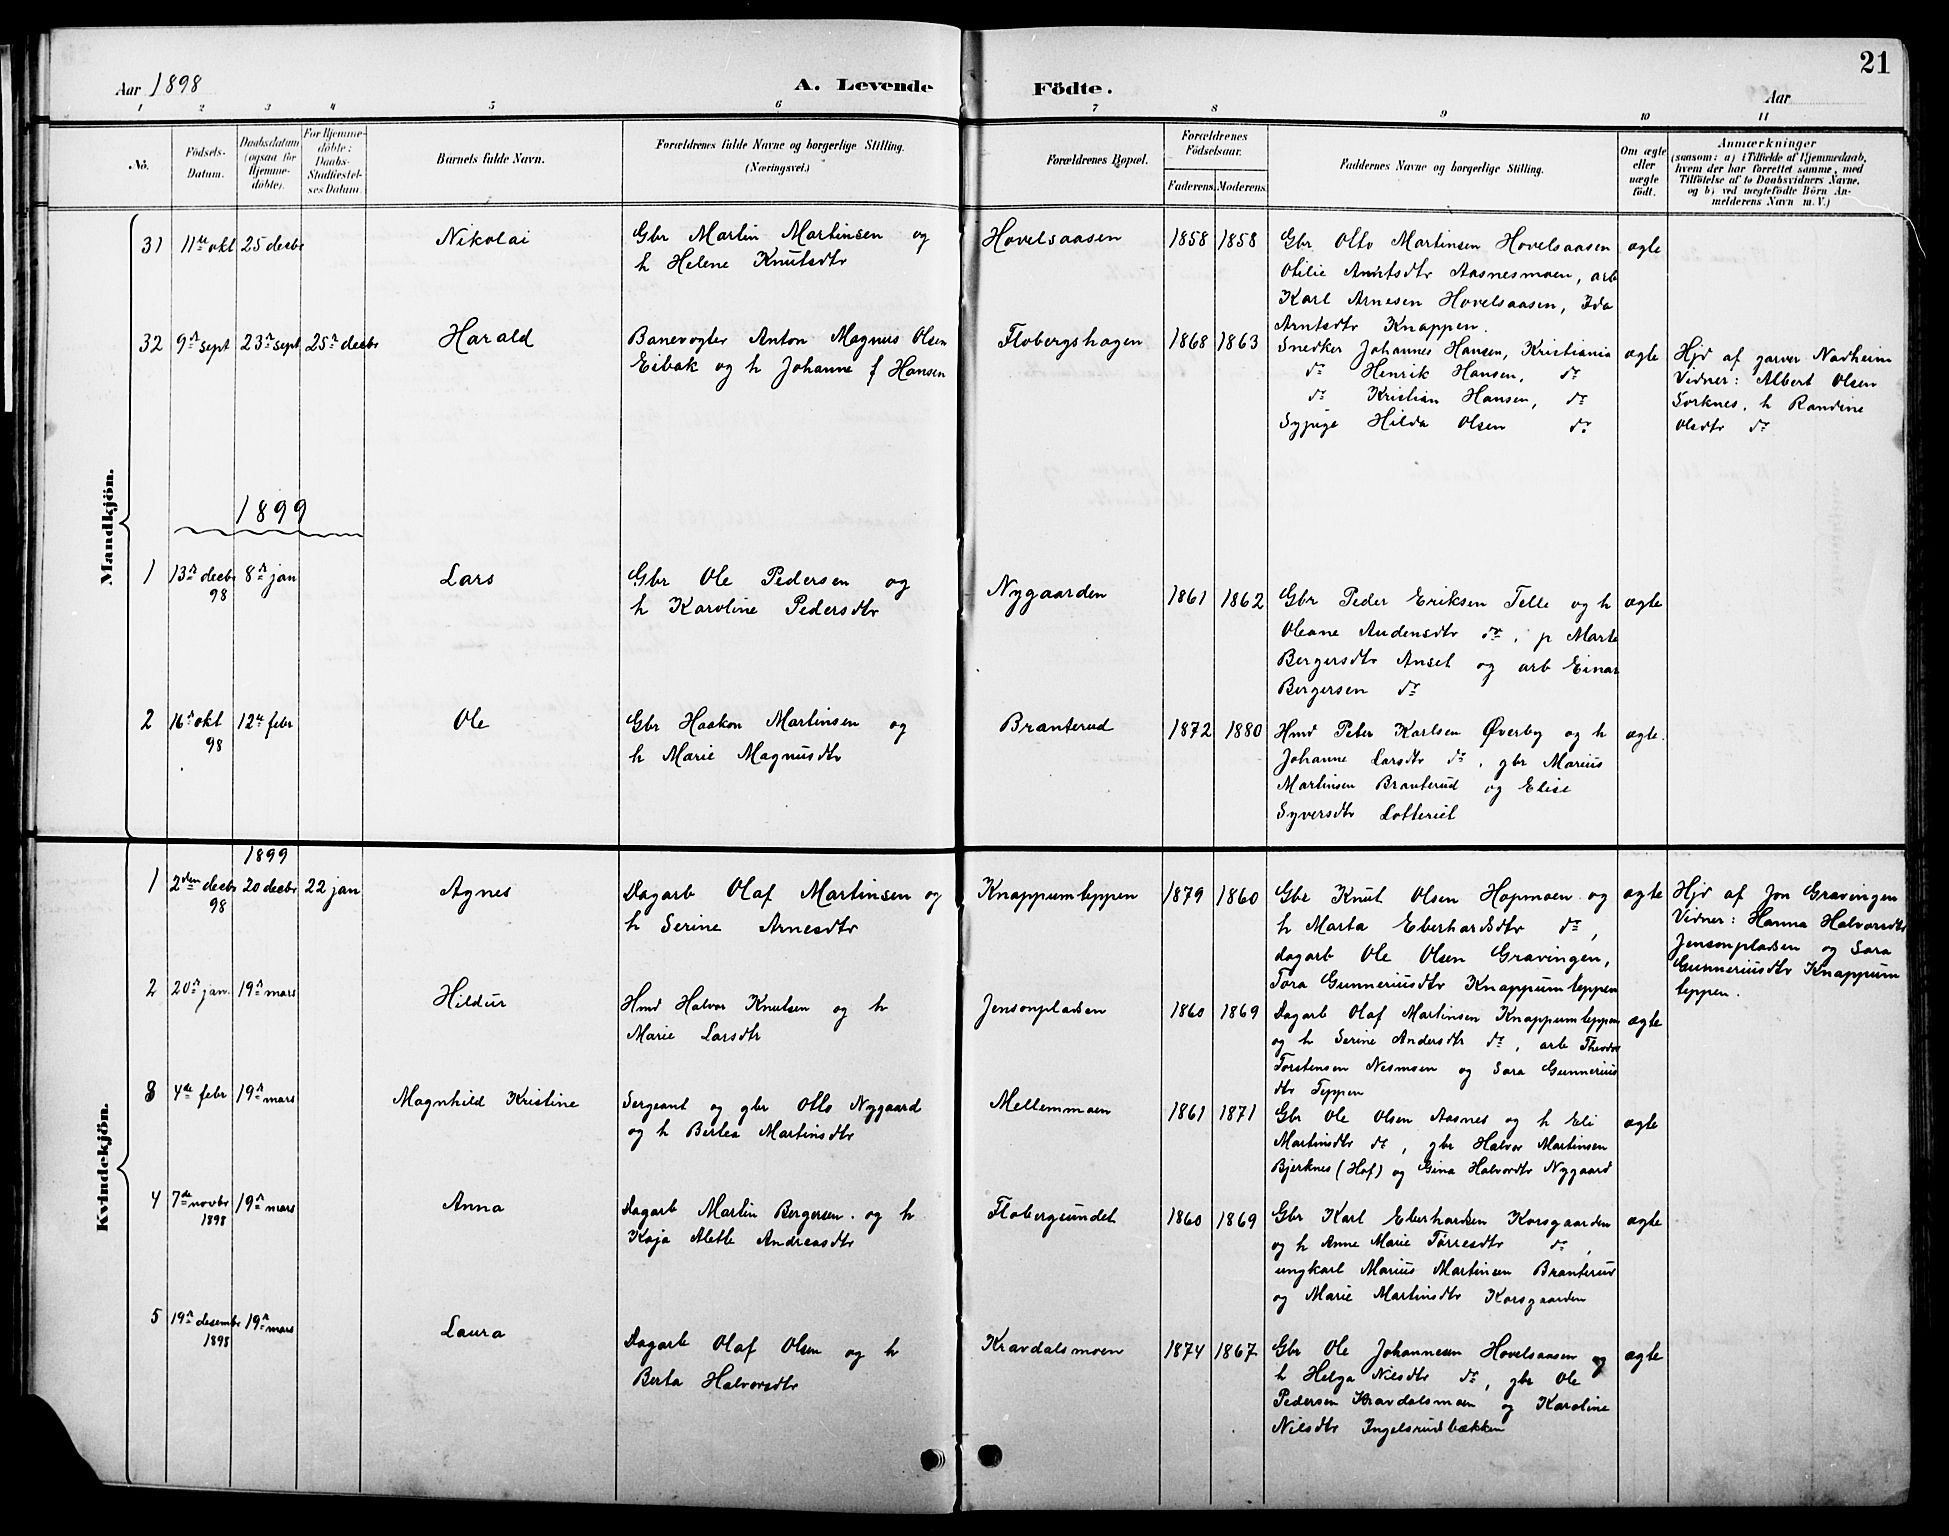 21
Aar 1898
A. Levende Födte.
Aar
1 2 3 4 5 6 7 8 9 10 11
No.
Födsels-
Datum.
Daabsdatum
(ogsaa for
Hjemme-
döbte).
For Hjemme-
döbte:
Daabs-
Stadfæstel-
ses Datum.
Barnets fulde Navn.
Forældrenes fulde Navne og borgerlige Stilling.
(Næringsvei.)
Forældrenes Bopæl.
Forældrenes
Födselsaar.
Faderens. Moderens.
Faddernes Navne og borgerlige Stilling.
Om ægte
eller
uægte
födt.
Anmærkninger
(saasom: a) i Tilfælde af Hjemmedaab,
hvem der har forrettet samme, med
Tilföielse af to Daabsvidners Navne,
og b) ved uægtefödte Börn An-
melderens Navn m. V.)
Mandkjön.
31 11te okt 25 decbr
Nikolai
Gbr Martin Martinsen og
h Helene Knutsdtr
Hovelsaasen
1858 1858
Gbr Otto Martinsen Hovelsaasen
Otilie Arntsdtr Aasnesmoen, arb
Karl Arnesen Hovelsaasen, Ida
Arntsdtr Knappen.
ægte
32 9de sept 23de sept 25de decbr
Harald
Banevogter Anton Magnus Olsen
Eibak og h Johanne f Hansen
Flobergshagen
1868 1863
Snedker Johannes Hansen, Kristiania
do Henrik Hansen, do
do Kristian Hansen, do
Sypige Hilda Olsen do
ægte
Hjd af garver Nordheim
Vidner: Albert Olsen
Sorknes, h Randine
Olsdtr do
1899
1 13de decbr 8de jan
98
Lars
Gbr Ole Pedersen og
h Karoline Pedersdtr
Nygaarden
1861 1862
Gbr Peder Eriksen Telle og h
Oleane Audensdtr do, p Marte
Bergersdtr Anset og arb Einar
Bergersen do
ægte
2 16de okt 12te febr
98
Ole
Gbr Haakon Martinsen og
h Marie Magnusdtr
Branterud
1872 1880
Hmd Peter Karlsen Øverby og h
Johanne Larsdtr do, gbr Marius
Martinsen Branterud og Elise
Syversdtr Lotteriet
ægte.
Kvindekjön.
1899
1 2den decbr 20 decbr 22 jan
98
Agnes
Dagarb Olaf Martinsen og
h Serine Arnesdtr
Knappumteppen
1879 1860
Gbr Knut Olsen Hapmoen og
h Marta Eberhardsdtr do,
dagarb Ole Olsen Gravingen,
Tora Gunneriusdtr Knappumteppen
ægte
Hjd af Jon Gravingen
Vidner: Hanna Halvorsdtr
Jensonpladsen og Sara
Gunneriusdtr Knappum
teppen.
2 20de jan. 19de mars
Hildur
Hmd Halvor Knutsen og h
Marie Larsdtr
Jensonpladsen
1860 1869
Dagarb Olaf Martinsen Knappumteppen
og h Serine Andersdtr do, arb Theodor
Torstensen Nesmoen og Sara Gunnerius
dtr Teppen
ægte
3 4de febr 19de mars
Magnhild Kristine
Sergeant og gbr Otto Nygaard
og h Bertea Martinsdtr
Mellemmoen
1861 1871
Gbr Ole Olsen Aasnes og h Eli
Martinsdtr do, gbr Halvor Martinsen
Bjerknes (Hof) og Gina Halvordtr Nygaard
ægte
4 7de novbr 19de mars
1898
Anna
Dagarb Martin Bergersen og h
Kaja Alette Andreasdtr
Flobergsundet
1860 1869
Gbr Karl Eberhardsen Korsgaarden
og h Anne Marie Torresdtr do,
ungkarl Marius Martinsen Branterud
og Marie Martinsdtr Korsgaarden
ægte
5 19de desembr 19de mars
1898
Laura
Dagarb Olaf Olsen og h
Berta Halvorsdtr
Kravdalsmoen
1874 1867
Gbr Ole Johannesen Hovelsaasen og
h Helga Nilsdtr do, gbr Ole
Pedersen Kravdalsmoen og Karoline
Nilsdtr Ingelsrudsbækken
ægte